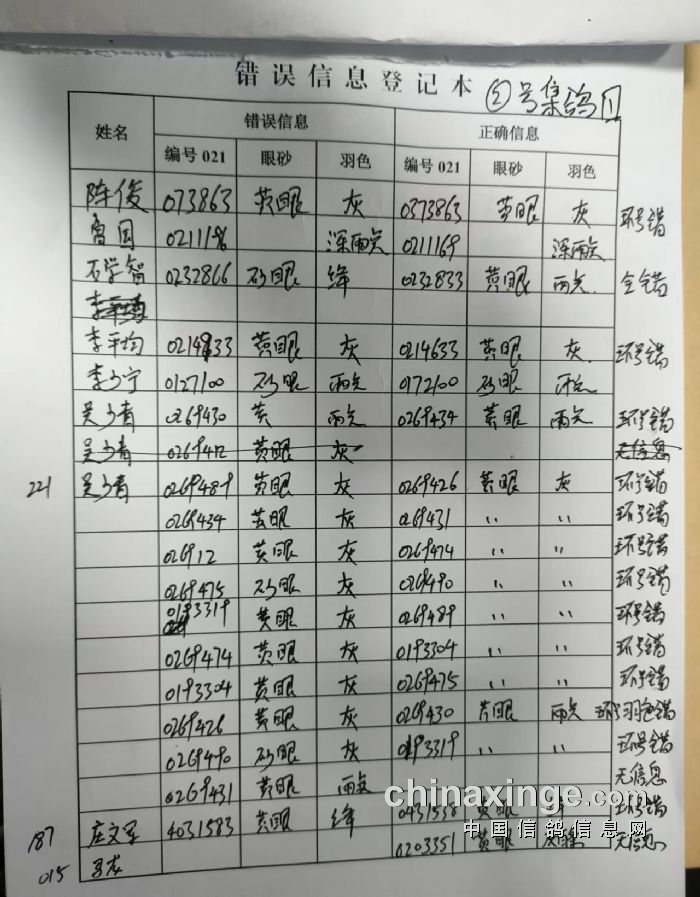 错误信息登记本 ②号集鸽
姓名 错误信息 正确信息
编号 021 眼砂 羽色 编号 021 眼砂 羽色
陈俊 073863 黄眼 灰 0373863 黄眼 灰 环号错
曾国 0211196 深雨点 0211169 深雨点
石学智 0232866 砂眼 绛 0232833 黄眼 雨点 全错
李平均
李平均 0214933 黄眼 灰 0214633 黄眼 灰 环号错
李少宁 0127100 砂眼 雨点 0172100 砂眼 雨点
吴少青 0269430 黄 雨点 0269434 黄眼 雨点 环号错
吴少青 0269412 黄眼 灰 无信息
221 吴少青 0269489 黄眼 灰 0269426 黄眼 灰 环号错
0269434 黄眼 灰 0269431 〃 〃 环号错
026912 黄眼 灰 0269474 〃 〃 环号错
0269475 砂眼 灰 0269490 〃 〃 环号错
0193319 黄眼 灰 0269489 〃 〃 环号错
0269474 黄眼 灰 0193304 〃 〃 环号错
0193304 黄眼 灰 0269475 〃 〃 环号错
0269426 黄眼 灰 0269430 黄眼 雨点 环号羽色错
0269490 砂眼 灰 0193319 〃 〃 环号错
0269431 黄眼 雨点 无信息
187 庄文军 4031583 黄眼 绛 0431538 黄眼 环号错
015 0203351 黄眼 无信息
chinaxinge.com
中国信鸽信息网